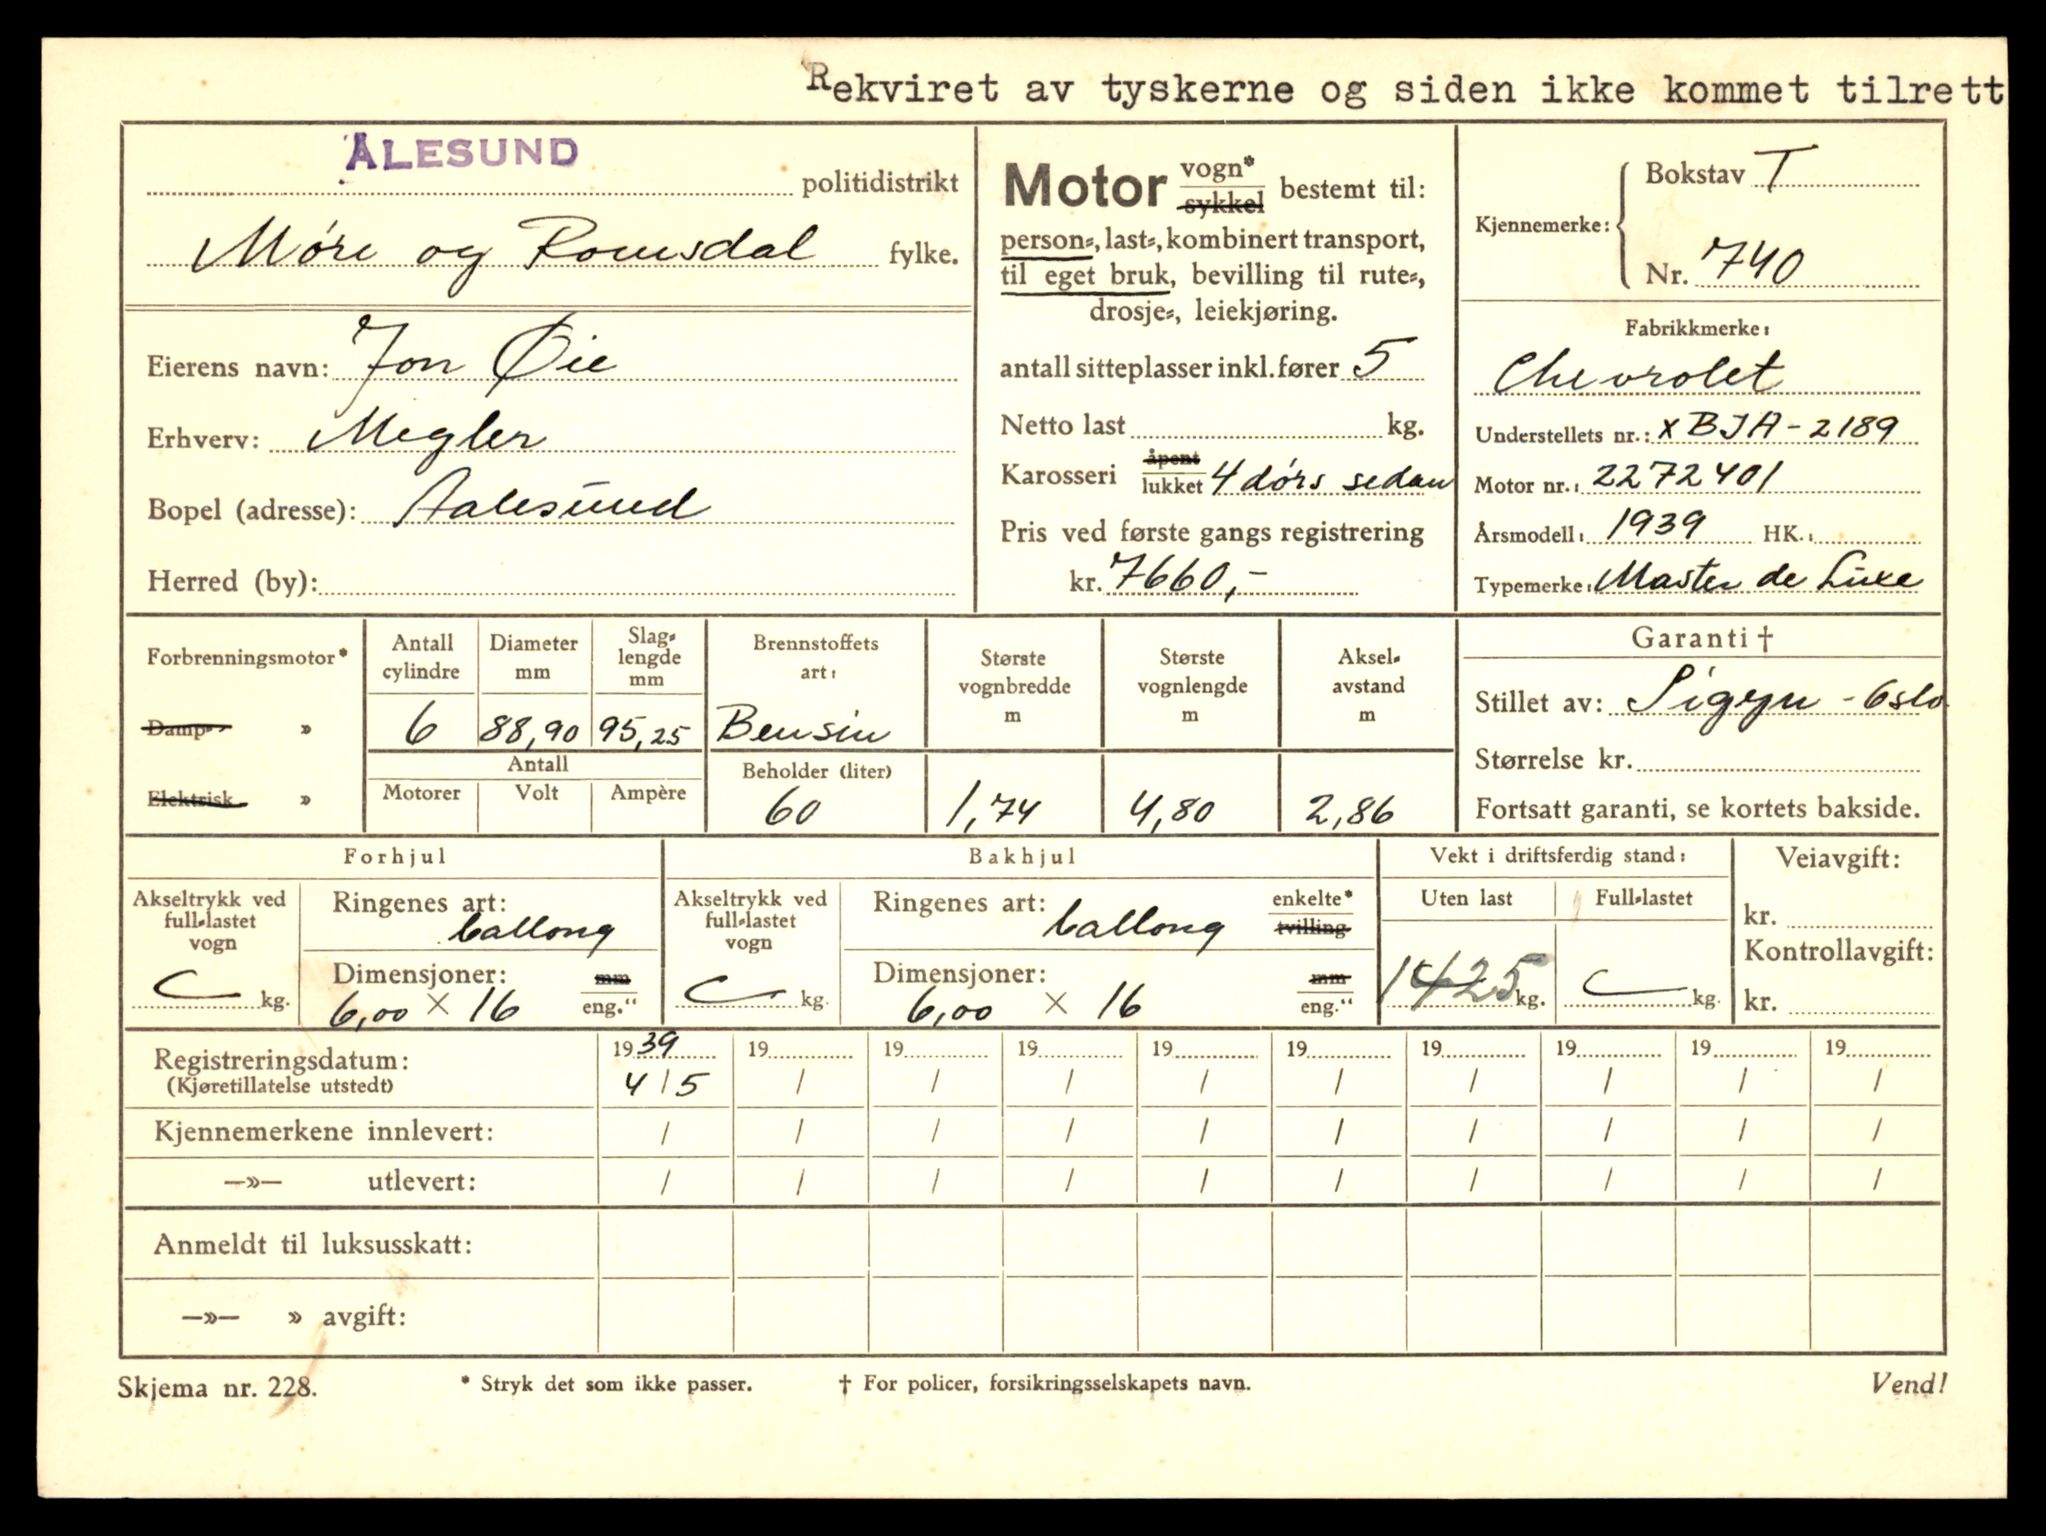 Rekviret av tyskerne og siden ikke kommet tilrett
ÅLESUND politidistrikt
Møre og Romsdal fylke.
Eierens navn: Jon Øie
Erhverv: Megler
Bopel (adresse): Aalesund
Herred (by):
Motor vogn* sykkel bestemt til:
person-, last-, kombinert transport,
til eget bruk, bevilling til rute-,
drosje-, leiekjøring.
antall sitteplasser inkl. fører 5
Netto last kg.
Karosseri åpent lukket 4 dørs sedan
Pris ved første gangs registrering
kr. 7660,-
Kjennemerke: Bokstav T
Nr. 740
Fabrikkmerke:
Chevrolet
Understellets nr.: x BJA - 2189
Motor nr.: 2272401
Årsmodell: 1939 HK.:
Typemerke: Master de Luxe
Forbrenningsmotor*
Damp- »
Elektrisk »
Antall cylindre
6
Diameter mm
88,90
Slag-lengde mm
95,25
Antall
Motorer Volt Ampère
Brennstoffets art:
Bensin
Beholder (liter)
60
Største vognbredde m
1,74
Største vognlengde m
4,80
Aksel-avstand m
2,86
Garanti †
Stillet av: Sigyn - Oslo
Størrelse kr.
Fortsatt garanti, se kortets bakside.
Forhjul
Akseltrykk ved full-lastet vogn
kg.
Ringenes art:
ballong
Dimensjoner: mm
6,00 × 16 eng."
Bakhjul
Akseltrykk ved full-lastet vogn
kg.
Ringenes art: enkelte*
ballong tvilling
Dimensjoner: mm
6,00 × 16 eng."
Vekt i driftsferdig stand:
Uten last Full-lastet
1425 kg. kg.
Veiavgift:
kr.
Kontrollavgift:
kr.
Registreringsdatum: 1939 19 19 19 19 19 19 19 19 19
(Kjøretillatelse utstedt) 4/5 / / / / / / / / /
Kjennemerkene innlevert: / / / / / / / / / /
—»— utlevert: / / / / / / / / / /
Anmeldt til luksusskatt:
—»— » avgift:
Skjema nr. 228. * Stryk det som ikke passer. † For policer, forsikringsselskapets navn. Vend!